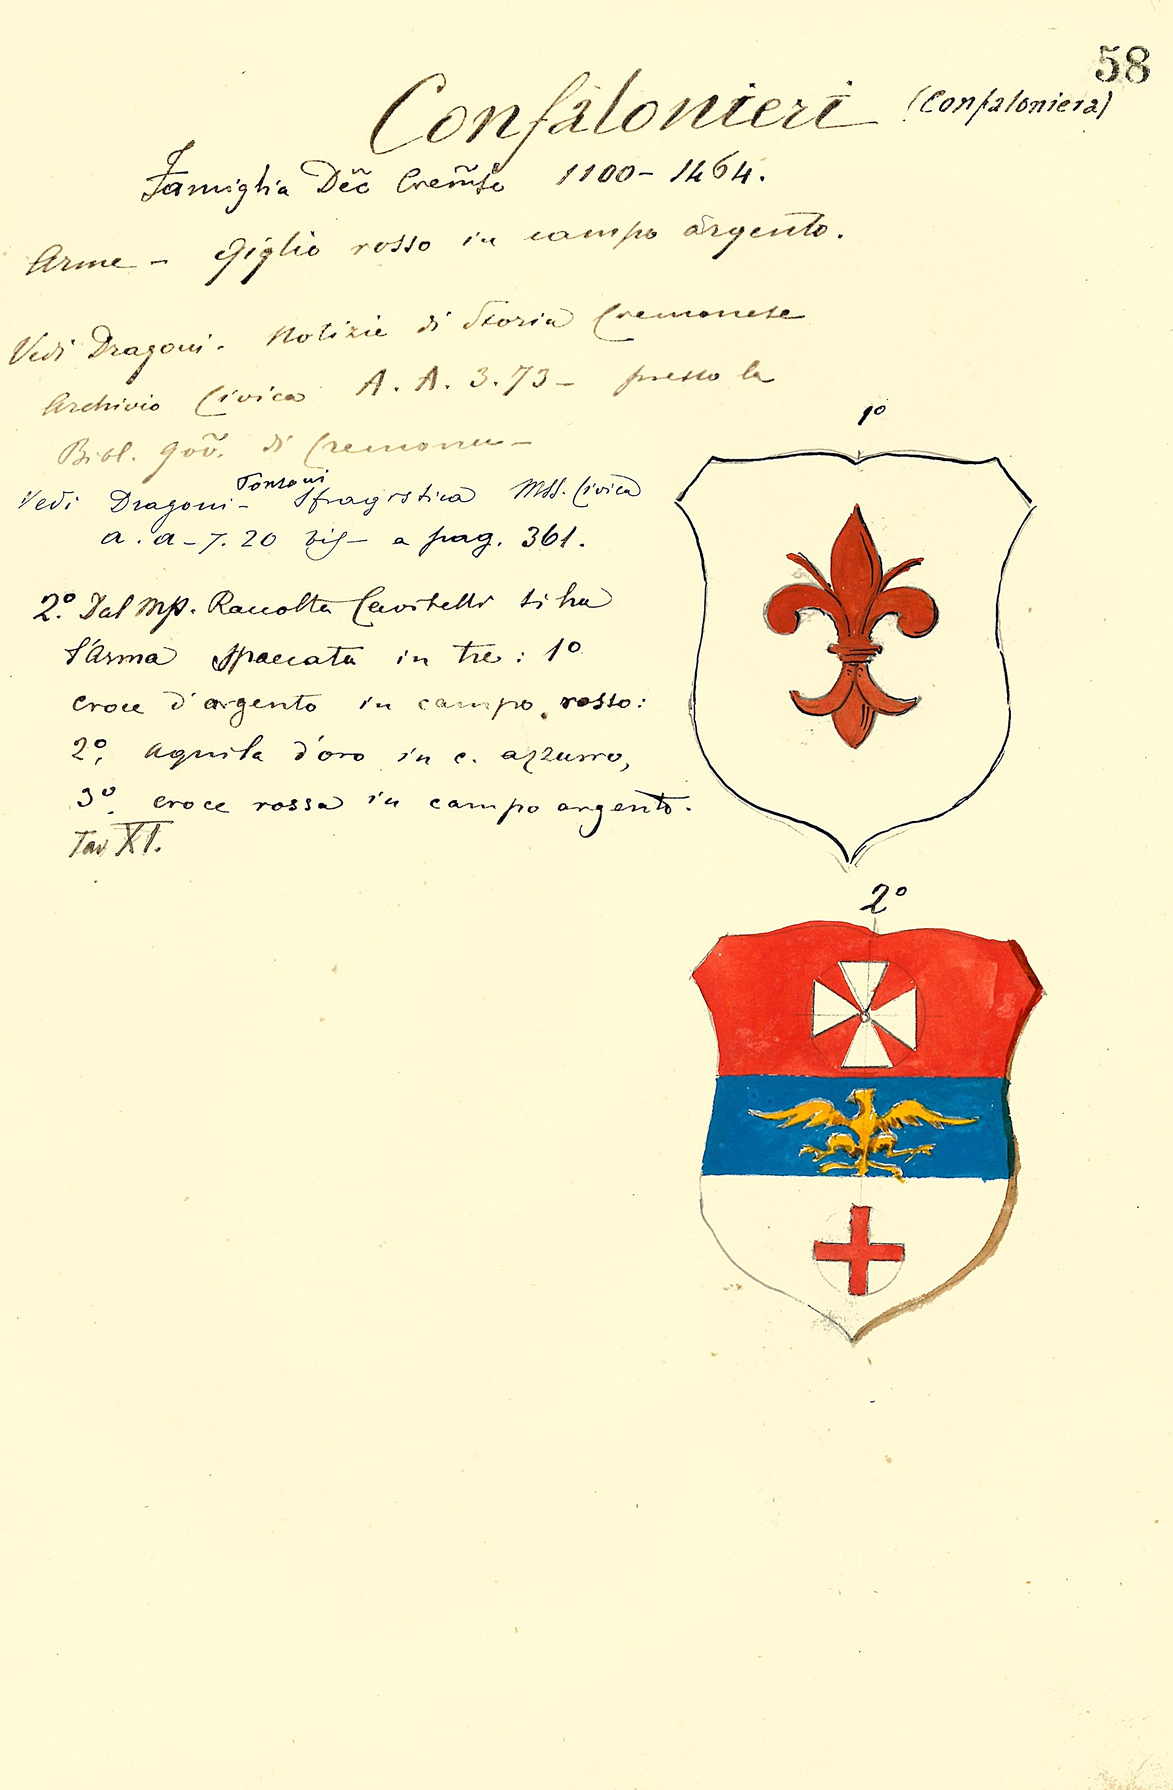 58
Confalonieri (Confaloniera)
Famiglia Dec̃c̃ Crem̃se 1100-1464.
Arme - Giglio rosso in campo argento.
Vedi Dragoni. Notizie di Storia Cremonese
Archivio Civico A. A. 3. 73 - presso la
Bibl. Goṽ. di Cremona -
Vedi Dragoni - Tonsoni Sfragistica MSS. Civica
a. a - 7. 20 - a pag. 361.
2.° Dal Raccolta Cavitelli si ha
l'Arma spaccata in tre: 1°
croce d'argento in campo rosso:
2°, aquila d'oro in c. azzurro,
3°. croce rossa in campo argento.
Tav XI.
1°
2°